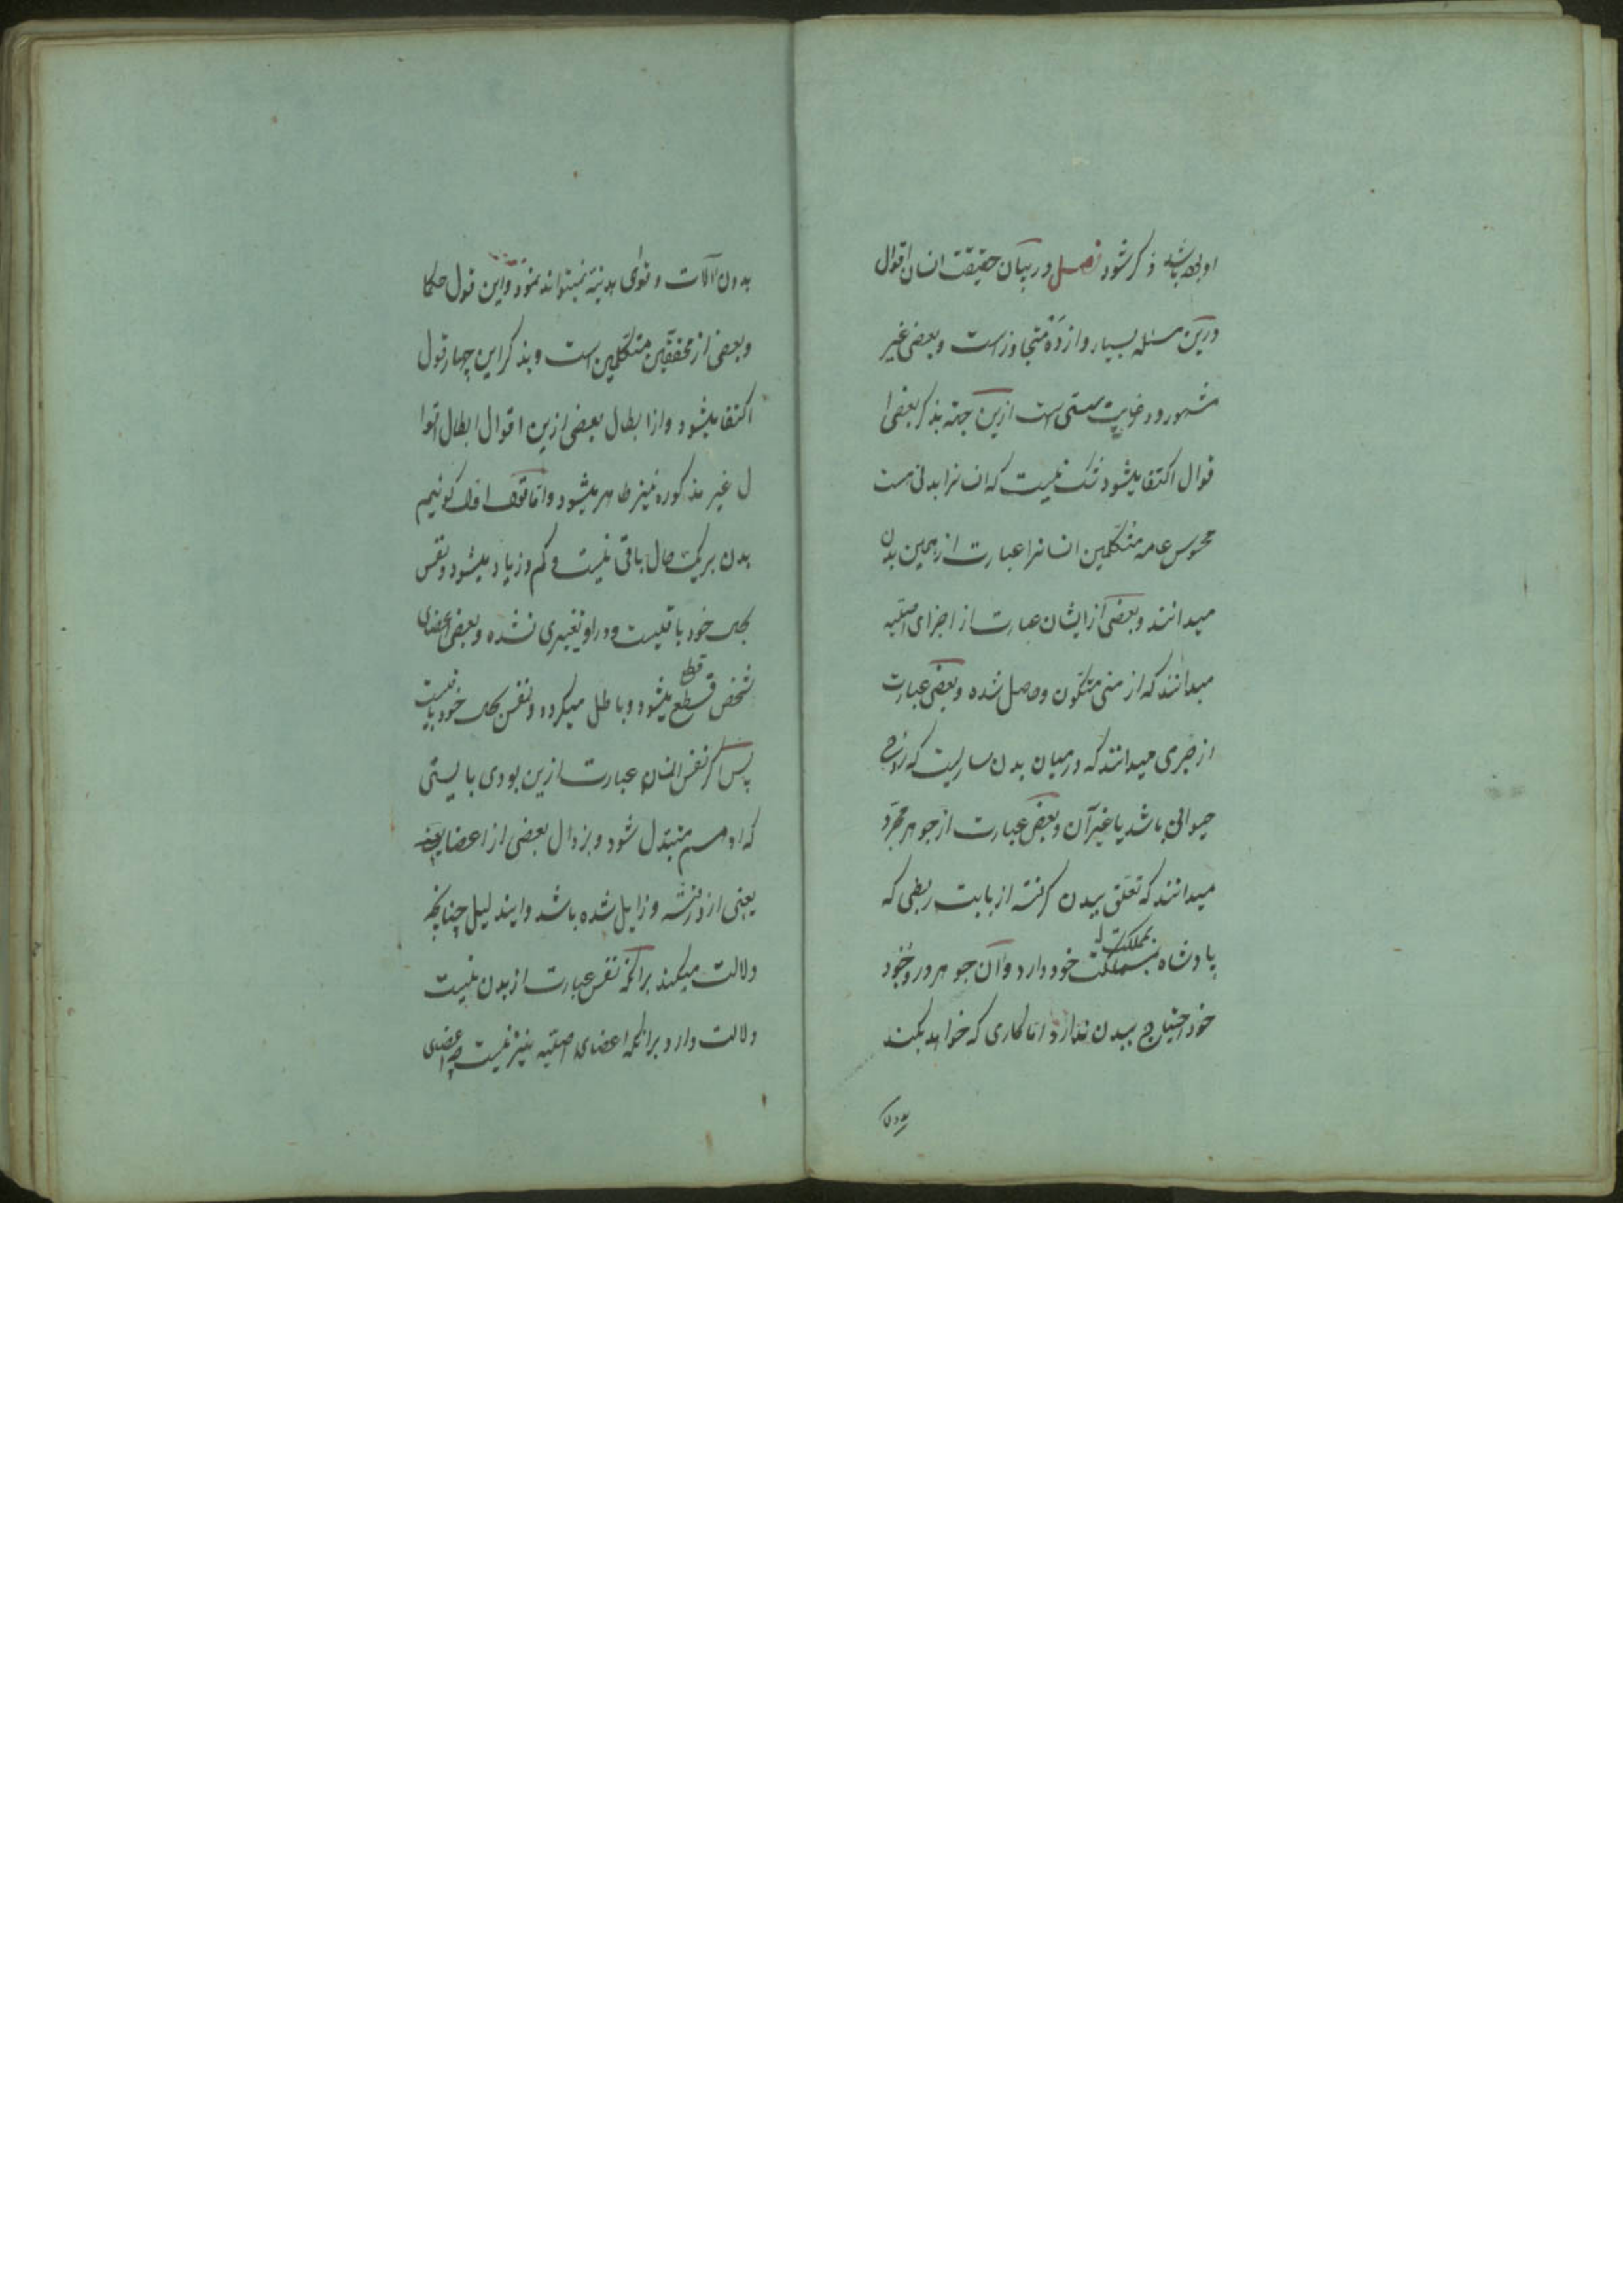 اولی باشد ذکر شود فصل در بیان حقیقت انسان اقوال
درین مسئله بسیار و از ده متجاوز است و بعضی غیر
مشهور و در غایت سستی است ازین جهت بذکر بعضی ا
قوال اکتفا میشود شک نیست که انسانرا بدنی هست
محسوس عامه متکلمین انسانرا عبارت از همین بدن
میدانند و بعضی از ایشان عبارت از اجزای اصلیه
میدانند که از منی متکون و حاصل شده و بعضی عبارت
از جزی میدانند که در میان بدن ساریست که روح
حیوانی باشد یا غیر آن و بعضی عبارت از جوهر مجرد
میدانند که تعلق ببدن گرفته از بابت ربطی که
پادشاه بمملکت خود دارد و آن جوهر در وجود
خود احتیاج ببدن ندارد اما کاری که خواهد بکند
بدون
بدون آلات و قوای بدنیه نمیتواند نمود و این قول حکما
و بعضی از محققین متکلمین است و بذکر این چهار قول
اکتفا میشود و از ابطال بعضی ازین اقوال ابطال اقوا
ل غیر مذکوره نیز ظاهر میشود و اما قول اول گوئیم
بدن بر یک حال باقی نیست و کم و زیاد میشود و نفس
بحال خود باقیست و در او تغییری نشده و بعضی اعضای
شخص قطع میشود و باطل میگردد و نفس بحال خود باقیست
پس اگر نفس انسان عبارت ازین بودی بایستی
که او هم متبدل شود و بزوال بعضی از اعضا
یعنی از او رفته و زایل شده باشد و ایندلیل چنانچه
دلالت میکند بر آنکه نفس عبارت از بدن نیست
دلالت دارد بر آنکه اعضای اصلیه نیز نیست چه اعضای